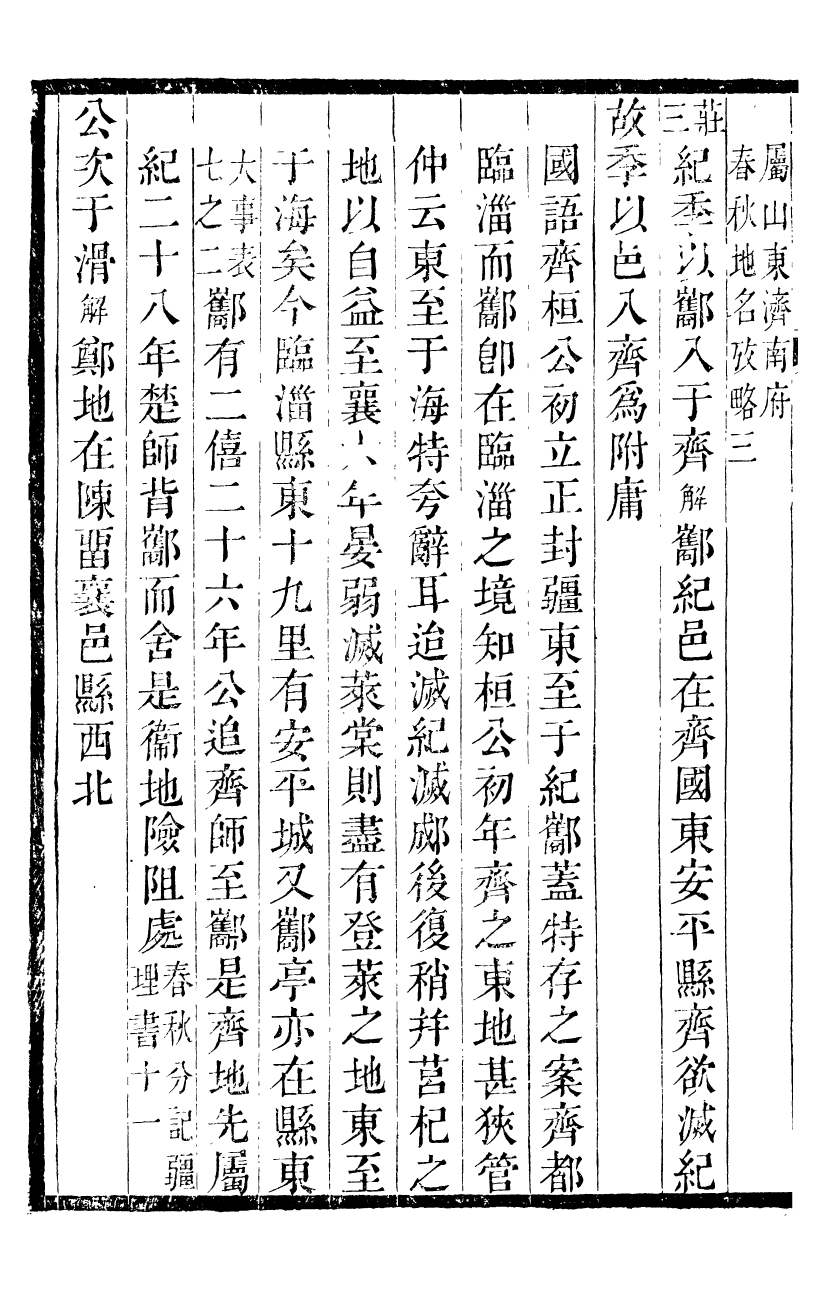 屬山東濟南府
春秋地名攷略三
莊三紀季以酅入于齊解酅紀邑在齊國東安平縣齊欲滅紀
故季以邑入齊爲附庸
國語齊桓公初立正封疆東至于紀酅蓋特存之案齊都
臨淄而酅卽在臨淄之境知桓公初年齊之東地甚狹管
仲云東至于海特夸辭耳迨滅紀滅郕後復稍并莒杞之
地以自益至襄六年晏弱滅萊棠則盡有登萊之地東至
于海矣今臨淄縣東十九里有安平城又酅亭亦在縣東
大事表
七之二酅有二僖二十六年公追齊師至酅是齊地先屬
紀二十八年楚師背酅而舍是衞地險阻處春秋分記疆
理書十一
公次于滑解鄭地在陳畱襄邑縣西北